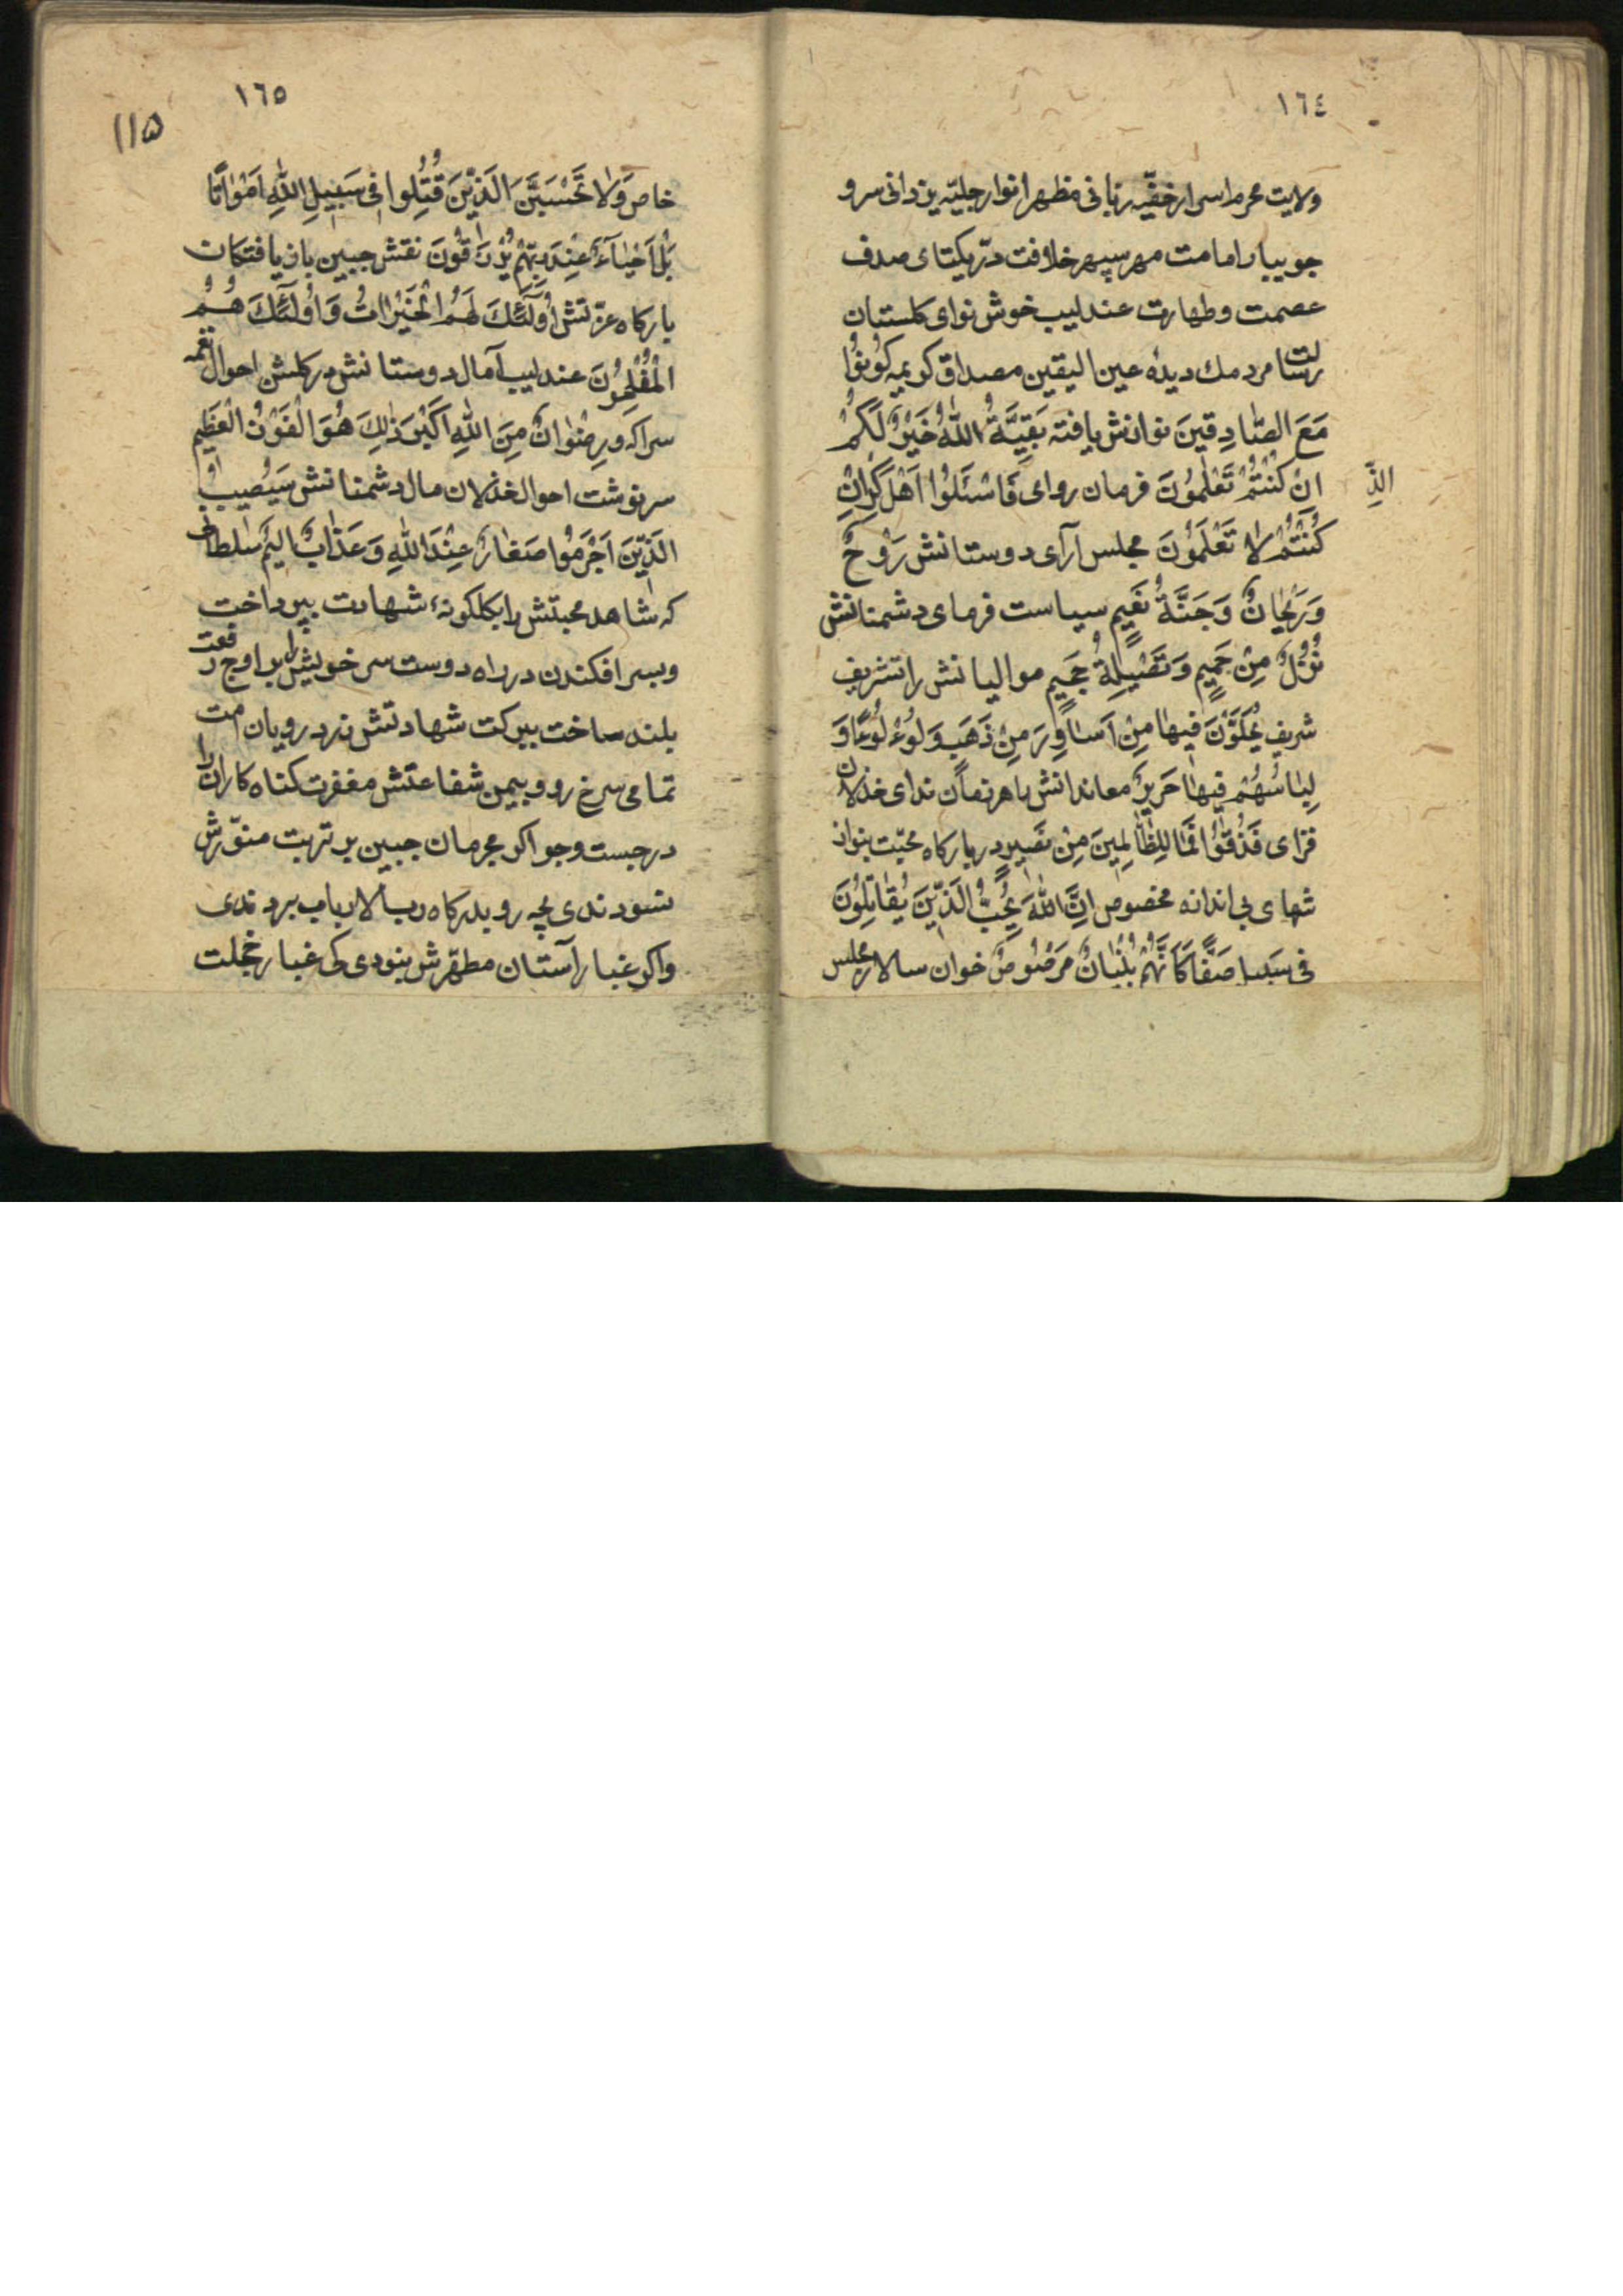 ١٦٤
ولایت محرم اسرار خفیّه ربانی مظهر انوار جلیّه یزدانی سرو
جویبار امامت مهر سپهر خلافت درّ یکتای صدف
عصمت و طهارت عندلیب خوش نوای کلستان
رسالت مردمك دیدهٔ عین الیقین مصداق کریمه کُونُوا
مَعَ الصّٰادِقینَ نوازش یافته بَقِیَّةُ اللّٰهُ خَیْرٌ لَکُمْ
اِنْ کُنْتُمْ تَعْلَمُونَ فرمان روای فَاسْئَلُوا اَهْلَ کْرِاِنْ
الذِّ
کُنْتُمْ لاٰ تَعْلَمُونَ مجلس آرای دوستانش رَوْحٌ
وَرَیْحٰانٌ وَجَنَّةُ نَعیمٍ سیاست فرمای دشمنانش
نُزُلٌ مِنْ حَمیمٍ وَتَصْلِیَةُ جَحیمٍ موالیانش را تشریف
شریف یُحَلَّوْنَ فیهٰا مِنْ اَسٰاوِرَ مِنْ ذَهَبٍ وَلُؤْلُؤًا وَ
لِبٰاسُهُمْ فیهٰا حَریرٌ معاندانش را هر زمان ندای خذلان
فزای فَذُوقُوا فَمٰا لِلظّٰالِمینَ مِنْ نَصیرٍ در بارکاه محبّت بنواز
شهای بی اندازه مخصوص اِنَّ اللّٰهَ یُحِبُّ الَّذینَ یُقٰاتِلُونَ
فی سَبیلِهِ صَفًّا کَاَنَّهُمْ بُنْیٰانٌ مَرْصُوصٌ خوان سالار مجلس
١٦٥
١١۵
خاص وَلاٰ تَحْسَبَنَّ الَّذینَ قُتِلُوا فی سَبیلِ اللّٰهِ اَمْوٰاتًا
بَلْ اَحْیٰآءٌ عِنْدَ رَبِّهِمْ یُرْزَقُونَ نقش جبین باز یافتکان
بارکاه عزّتش اُولٰٓئِكَ لَهُمُ الْخَیْرٰاتُ وَاُولٰٓئِكَ هُمُ
الْمُفْلِحُونَ عندلیب آمال دوستانش در کلشن احوال نغمه
سرا که وَرِضْوٰانٌ مِنَ اللّٰهِ اَکْبَرُ ذٰلِكَ هُوَ الْفَوْزُ الْعَظیمُ
سرنوشت احوال خذلان مال دشمنانش سَیُصیبُ
الَّذینَ اَجْرَمُوا صَغٰارٌ عِنْدَ اللّٰهِ وَعَذٰابٌ الیم سلطانی
که شاهد محبتش را بکلکونهٔ شهادت بپرداخت
و بسر افکندن در راه دوست سر خویش را بر اوج رفعت
بلند ساخت ببرکت شهادتش زرد رویان امت
تمامی سرخ رو و بیمن شفاعتش مغفرت کناه کاران را
در جست وجو اکر مجرمان جبین بر تربت منوّرش
نسودندی بچه رو بدرکاه رب الارباب بردندی
و اکر غبار آستان مطهّرش بنودی کی غبار خجلت